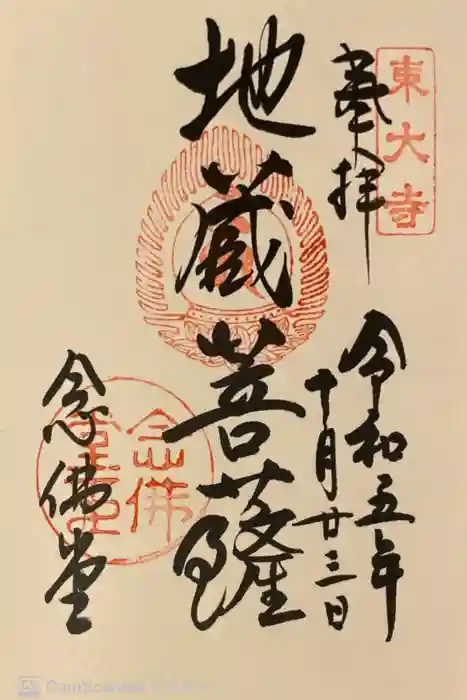 東大寺
奉拝
令和五年
十月廿三日
地蔵菩薩
念佛堂
念佛
堂印
CamScanner